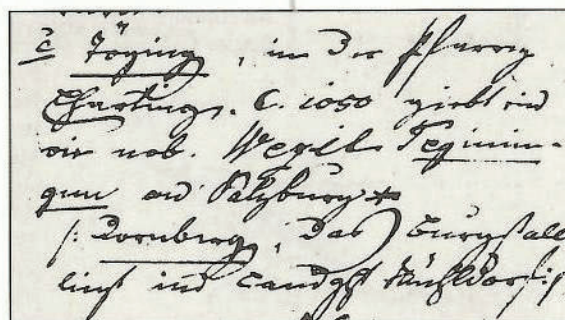 c Töging, in der Pfarrey
Eharting. C. 1050 giebt ein
vir nob. Wezil Teginin-
gun ad Salzburg *
/: Dornberg, das Burgstall
liegt im Landght Mühldorf :/